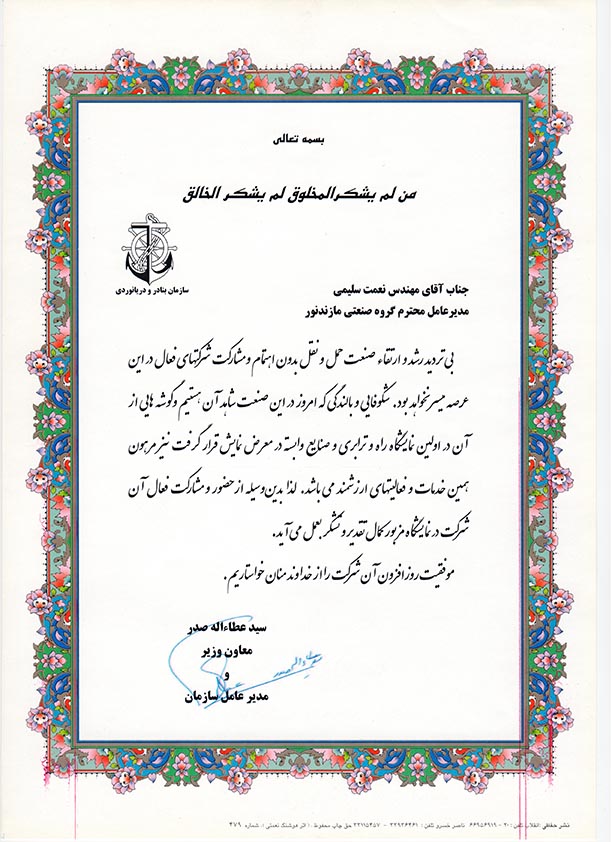 بسمه تعالی
من لم یشکرالمخلوق لم یشکر الخالق
سازمان بنادر و دریانوردی
جناب آقای مهندس نعمت سلیمی
مدیرعامل محترم گروه صنعتی مازندنور
بی تردید رشد و ارتقاء صنعت حمل و نقل بدون اهتمام و مشارکت شرکتهای فعال در این
عرصه میسر نخواهد بود. شکوفایی و بالندگی که امروز در این صنعت شاهد آن هستیم و گوشه هایی از
آن در اولین نمایشگاه راه و ترابری و صنایع وابسته در معرض نمایش قرار گرفت نیز مرهون
همین خدمات و فعالیتهای ارزشمند می باشد. لذا بدین وسیله از حضور و مشارکت فعال آن
شرکت در نمایشگاه مزبور کمال تقدیر و تشکر بعمل می آید.
موفقیت روز افزون آن شرکت را از خداوند منان خواستاریم.
سید عطاءاله صدر
معاون وزیر
و
مدیر عامل سازمان
نشر حفاظی: انقلاب تلفن: ۲۰ - ۶۶۹۵۶۹۱۹ ناصر خسرو تلفن: ۳۳۹۲۶۴۶۱ - ۳۳۱۱۵۴۵۷ حق چاپ محفوظ. (اثر هوشنگ نعمتی) شماره ۴۷۹